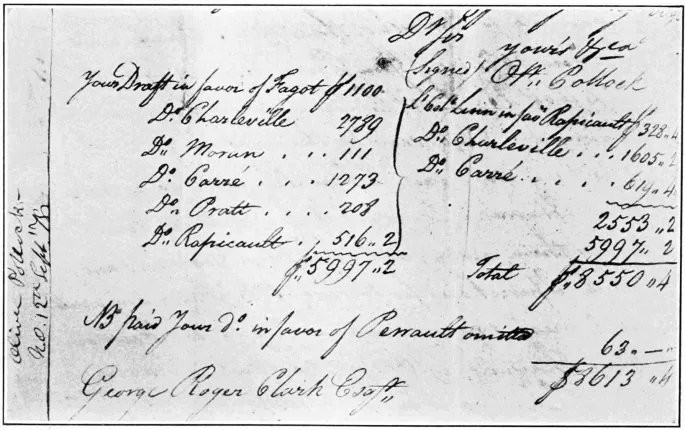 Dr Sir
your's &ca
(Signed) Olr. Pollock
Your Draft in favor of Fagot $ 1100
Do. Charleville 2789
Do. Moran . . . 111
Do. Carré . . . . 1273
Do. Pratt . . . . 208
Do. Rapicault . 516 „ 2
$ 5997 „ 2
Lt. Col. Linn in favr. Rapicault $ 328 „ 4
Do. Charleville . . . 1605 „ 2
Do. Carré . . . . . 619 „ 4
2553 „ 2
5997 „ 2
Total $ 8550 „ 4
NB paid Your do. in favor of Perrault omitted
63 „ —
$ 8613 „ 4
George Roger Clark Esqr.
Oliver Pollock -
N.O. 12th Sept.